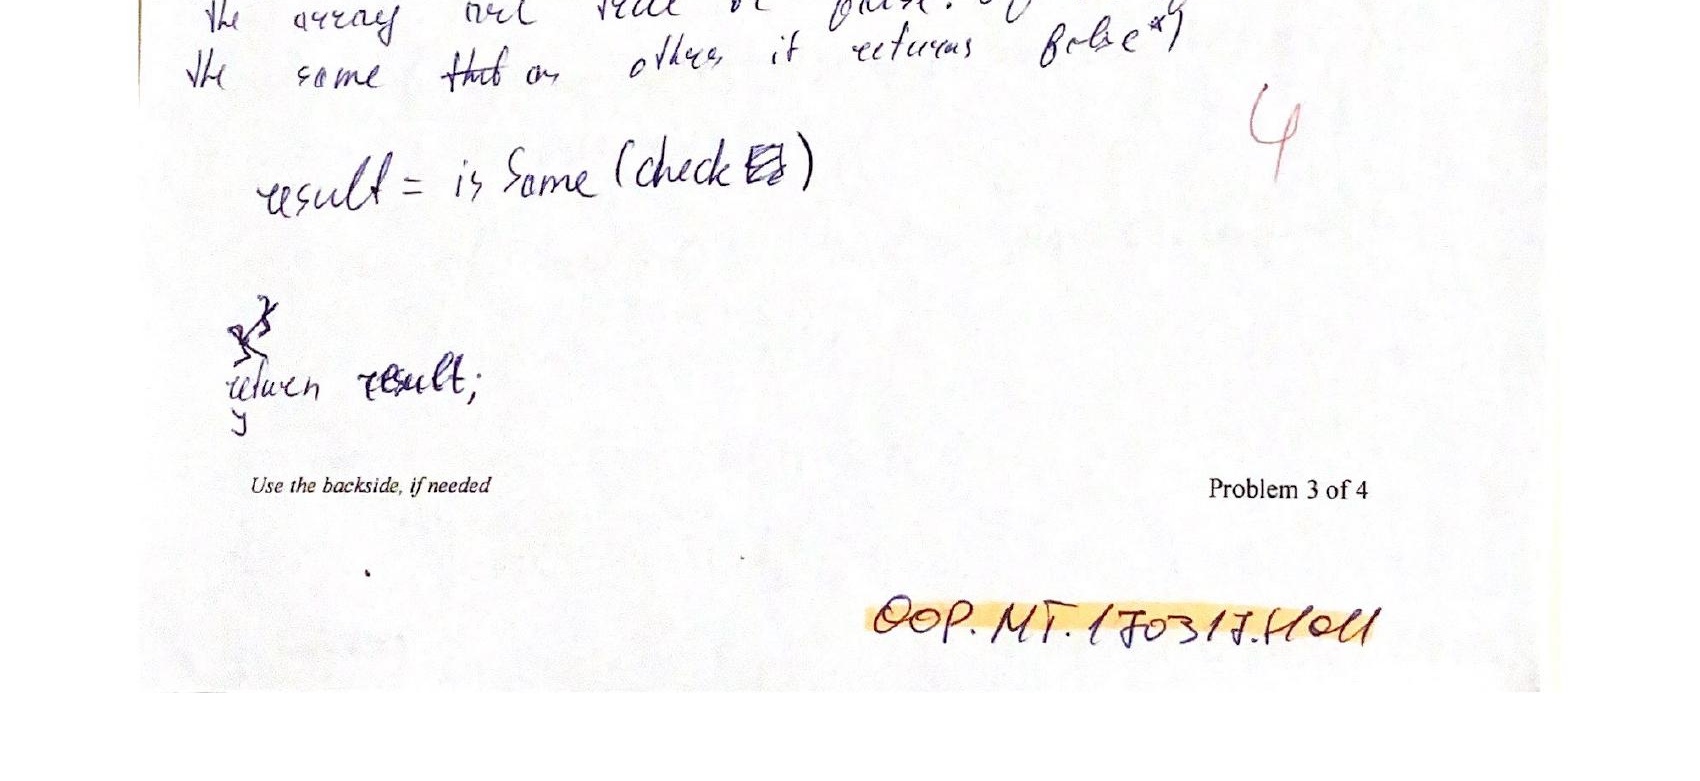 the array
the same that as others it returns false*)
4
result = isSame (check)
return result;
}
Use the backside, if needed
Problem 3 of 4
OOP.MT.170317.H011